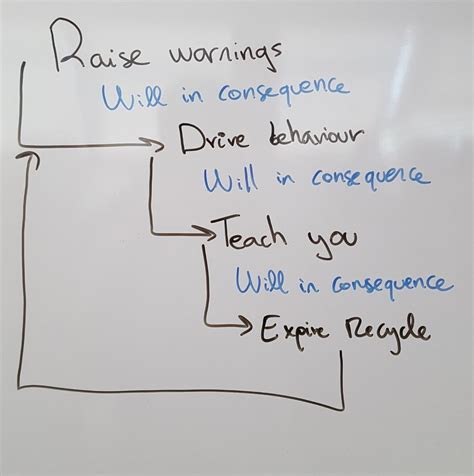 Raise warnings
Will in consequence
Drive behaviour
Will in consequence
Teach you
Will in consequence
Expire Recycle